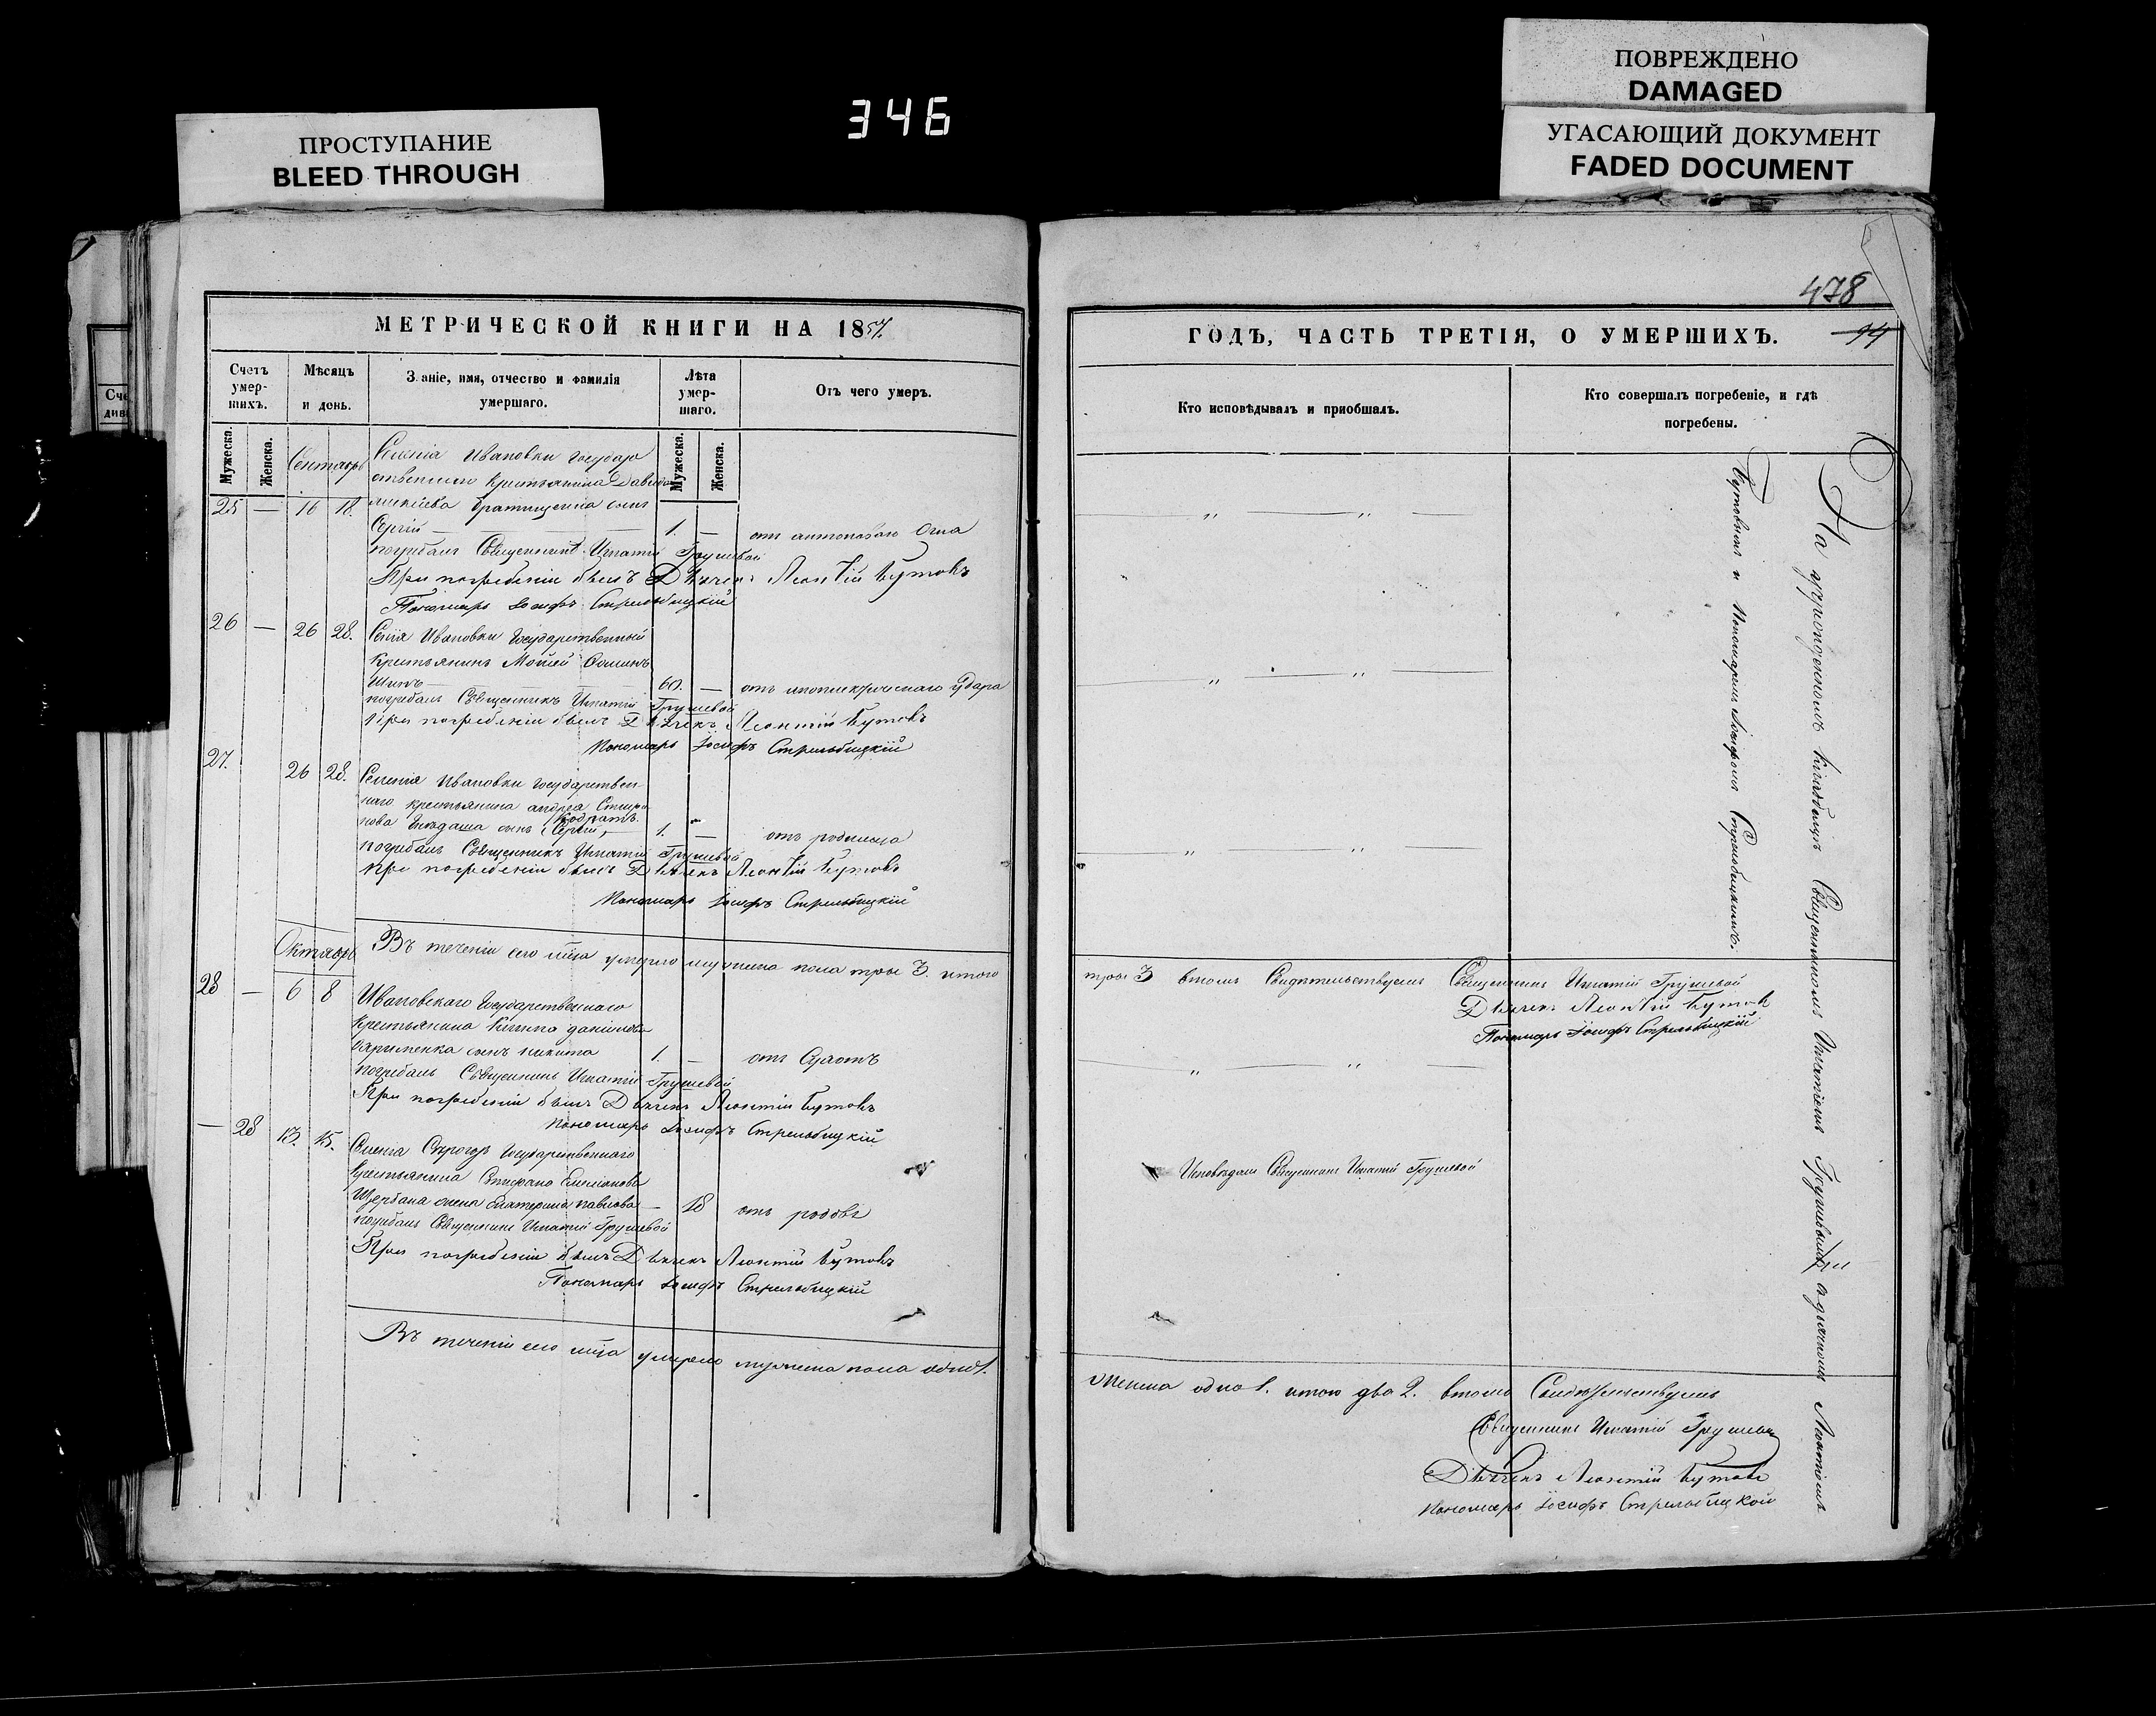 ПРОСТУПАНИЕ
BLEED THROUGH
346
ПОВРЕЖДЕНО
DAMAGED
УГАСАЮЩИЙ ДОКУМЕНТ
FADED DOCUMENT
МЕТРИЧЕСКОЙ КНИГИ НА 1857.
Счетъ умер-шихъ.
Мѣсяцъ и день.
Званіе, имя, отчество и фамилія умершаго.
Лѣта умер-шаго.
Отъ чего умеръ.
Мужеска.
Женска.
Мужеска.
Женска.
Сентябрь
Селенія Ивановки государ
ственнаго крестьянина Давида
25 — 16 18. сынъ
Сергій — 1. — отъ антонова огна
погребалъ Священникъ Игнатій Грушевой
При погребеніи былъ Дьячекъ Леонтій Бутовъ
Пономарь Іосифъ Стрельбицкій
26 — 26 28. Селія Ивановки Государственный
крестьянинъ Мойсей
60. — отъ апоплексическаго удара
погребалъ Священникъ Игнатій Грушевой
При погребеніи былъ Дьячекъ Леонтій Бутовъ
Пономарь Іосифъ Стрельбицкій
27. 26 28. Селенія Ивановки государствен
наго крестьянина андрея
сынъ Сергій, Кодратъ 1. — отъ родимца
погребалъ Священникъ Игнатій Грушевой
При погребеніи былъ Дьячекъ Леонтій Бутовъ
Пономарь Іосифъ Стрельбицкій
Октябрь
Въ теченіи сего мца умерло мужеска пола трое 3. итого
28 — 6 8 Ивановскаго Государственнаго
крестьянина
сынъ никита 1. — отъ
погребалъ Священникъ Игнатій Грушевой
При погребеніи былъ Дьячекъ Леонтій Бутовъ
Пономарь Іосифъ Стрельбицкій
— 28 13. 15. Селенія Государственнаго
крестьянина
Щербана жена Екатерина павлова — 18 отъ родовъ
погребалъ Священникъ Игнатій Грушевой
При погребеніи былъ Дьячекъ Леонтій Бутовъ
Пономарь Іосифъ Стрельбицкій
Въ теченіи сего мца умерло мужеска пола одно 1.
478
94
ГОДЪ, ЧАСТЬ ТРЕТІЯ, О УМЕРШИХЪ.
Кто исповѣдывалъ и пріобщалъ.
Кто совершалъ погребеніе, и гдѣ погребены.
— „ — „ —
— „ — „ —
— „ — „ —
трое 3 втомъ Свидѣтельствуемъ Священникъ Игнатій Грушевой
Дьячекъ Леонтій Бутов
Пономарь Іосифъ Стрельбицкій
— „ — „ —
Исповѣдалъ Священникъ Игнатій Грушевой
женска одно 1. итого два 2. втомъ Свидѣтельствуемъ
Священникъ Игнатій Грушевой
Дьячекъ Леонтій Бутовъ
Пономарь Іосифъ Стрельбицкой
На кладбищѣ Священникомъ Игнатіемъ Грушевымъ Леонтіемъ
Бутовымъ и Пономаремъ Іосифомъ Стрельбицкимъ.